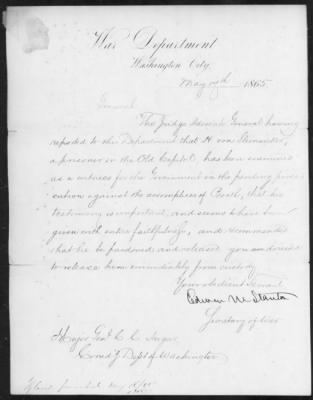 War Department
Washington City,
May 1865.
General
The Judge Advocate General having
reported to the Department that H. von
a prisoner in the Old Capitol, has been examined
as a witness for the Government in the pending prose-
cution against the accomplices of Booth, that his
testimony is important, and seems to have been
given with entire faithfulness, and recommended
that he be pardoned and released you are desired
to release him immediately from custody.
Your obedient Servant
Edwin M Stanton
Secretary of War
Major Genl C. C. Augur
Comd'g Dept of Washington